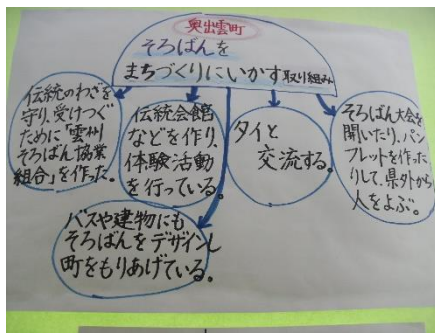 奥出雲町
そろばんを
まちづくりにいかす取り組み
伝統のわざを
守り、受けつぐ
ために「雲州
そろばん協業
組合」を作った。
伝統会館
などを作り、
体験活動
を行っている。
タイと
交流する。
そろばん大会を
開いたり、パン
フレットを作った
りして、県外から
人をよぶ。
バスや建物にも
そろばんをデザインし
町をもりあげている。